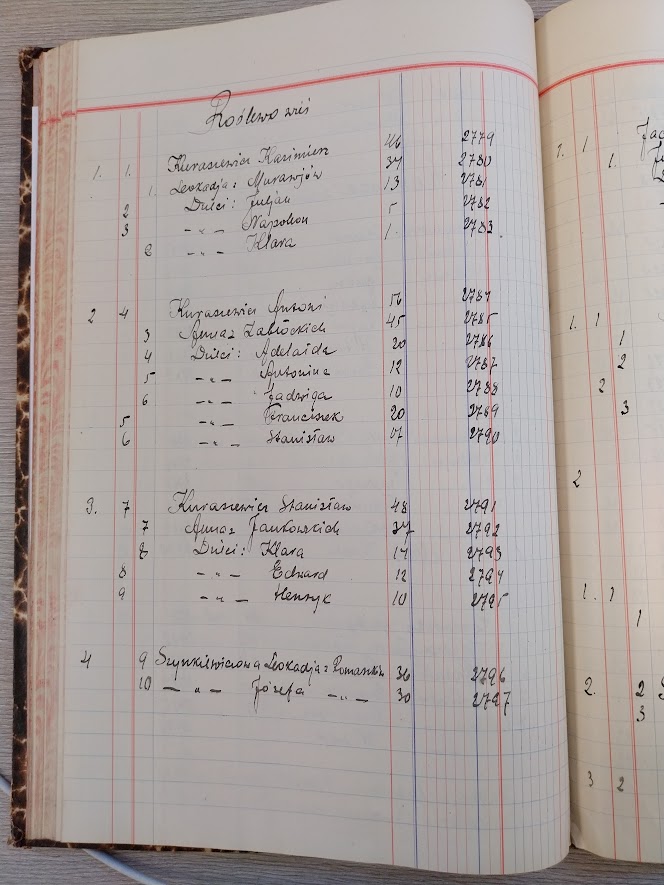 Roślewo wieś
1. 1. Kuraszewicz Kazimierz 46 2779
1. Leokadja z Murawjów 34 2780
2 Dzieci: Juljan 13 2781
3 -„- Napoleon 5 2782
2 -„- Klara 1. 2783
2 4 Kuraszewicz Antoni 56 2784
3 Anna z Zabłockich 45 2785
4 Dzieci: Adelaida 20 2786
5 -„- Antonina 12 2787
6 -„- Jadwiga 10 2788
5 -„- Franciszek 20 2789
6 -„- Stanisław 17 2790
3. 7 Kuraszewicz Stanisław 48 2791
7 Anna z Jankowskich 37 2792
8 Dzieci: Klara 14 2793
8 -„- Edward 12 2794
9 -„- Henryk 10 2795
4 9 Szynkiewiczowa Leokadja z Romanków 36 2796
10 -„- Józefa -„- 30 2797
1. 1
1.
1. 1
1
2
2
3
2
1. 1
1
2. 2
3
3 2